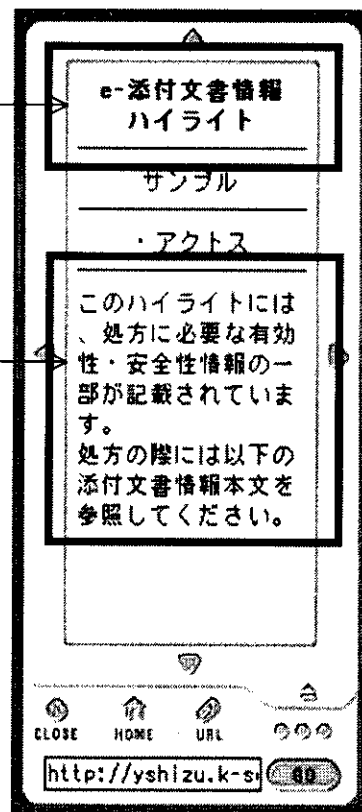 e-添付文書情報
ハイライト
サンプル
・アクトス
このハイライトには
、処方に必要な有効
性・安全性情報の一
部が記載されていま
す。
処方の際には以下の
添付文書情報本文を
参照してください。
CLOSE HOME URL
http://yshizu.k-s GO